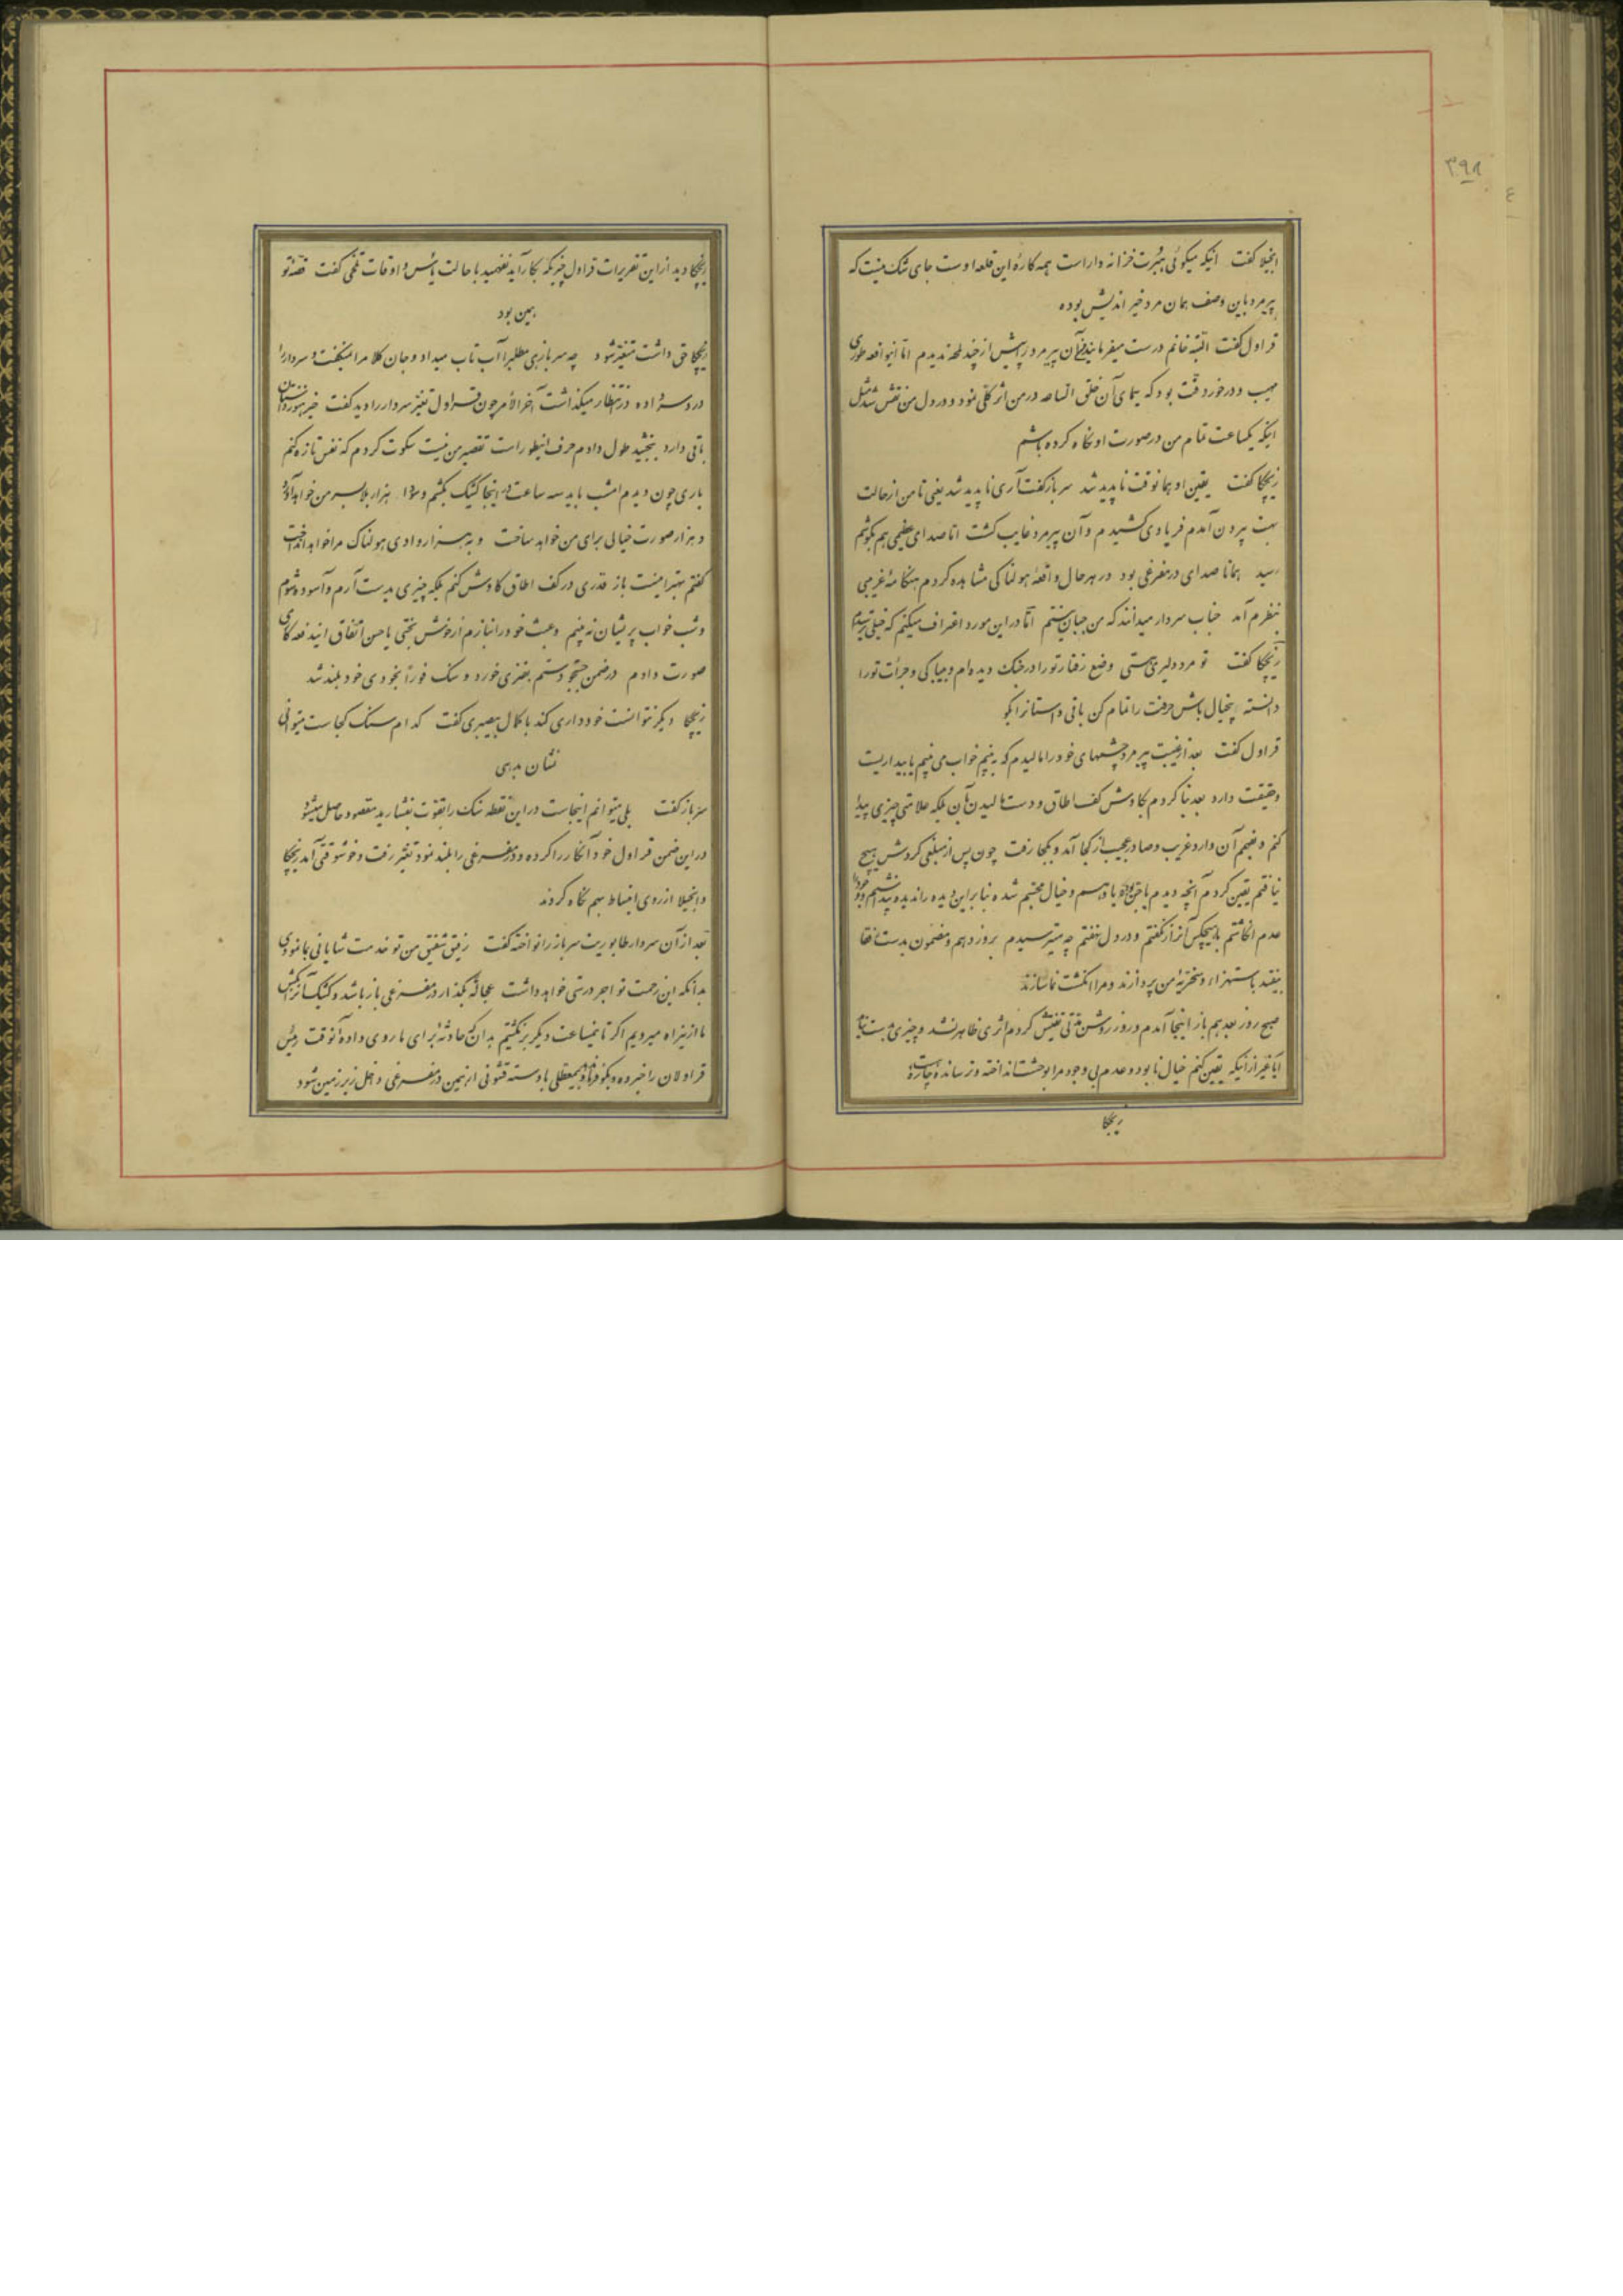 ۳۹۸
انجیلا گفت اینکه میگوئی هیبرت خزانه دار است همه کاره این قلعه اوست جای شک نیست که
پیرمرد باین وصف همان مرد خیر اندیش بوده
قراول گفت البته خانم درست میفرمایند آن پیرمرد را پیش از چند لمحه ندیدم اما اینواقعه طوری
مهیب و درخور دقت بود که سیمای آن خلق الساعه در من اثر کلی نمود و در دل من نقش شد مثل
اینکه یکساعت تمام من در صورت او نگاه کرده باشم
ریچکا گفت یقین او همانوقت ناپدید شد سرباز گفت آری ناپدید شد یعنی تا من از حالت
بهت بیرون آمدم فریادی کشیدم و آن پیرمرد غایب گشت اما صدای عظیمی هم بگوشم
رسید همانا صدای در مفرغی بود در هرحال واقعه هولناکی مشاهده کردم هنگامه غریبی
بنظرم آمد جناب سردار میدانند که من جبان نیستم اما در این مورد اعتراف میکنم که خیلی ترسیدم
ریچکا گفت تو مرد دلیری هستی وضع رفتار تو را در جنک دیده ام و بیباکی و جرأت تو را
دانسته بیخیال باش حرفت را تمام کن باقی داستانرا بگو
قراول گفت بعد از غیبت پیرمرد چشمهای خود را مالیدم که ببینم خواب می بینم یا بیداریست
و حقیقت دارد بعد بنا کردم بکاوش کف اطاق و دست مالیدن بآن بلکه علامتی چیزی پیدا
کنم و بفهمم آن وارد غریب و صادر عجیب از کجا آمد و بکجا رفت چون پس از مبلغی گردش هیچ
نیافتم یقین کردم آنچه دیدم یا جن بوده یا وهم و خیال مجسم شده بنابراین دیده را ندیده پنداشتم و وجود را
عدم انگاشتم بهیچکس آنراز نگفتم و در دل نهفتم چه میترسیدم بروز دهم و مضمون بدست رفقا
بیفتد باستهزاء و سخریه من پردازند و مرا انگشت نما سازند
صبح روز بعد هم باز اینجا آمدم و روز روشن مدتی تفتیش کردم اثری ظاهر نشد و چیزی بدست نیامد
آیا غیر از اینکه یقین کنم خیال نابود و عدم بی وجود مرا بوحشت انداخته و ترسانده چاره است
ریچکا
ریچکا دید از این تقریرات قراول چیزیکه بکار آید نفهمید با حالت یأس و اوقات تلخی گفت قصه تو
همین بود
ریچکا حق داشت متغیر شود چه سرباز هی مطلب را آب و تاب میداد و جان کلام را نمیگفت و سردار را
در دست زاده در انتظار میگذاشت آخر الأمر چون قراول تغیر سردار را دید گفت خیر هنوز داستان
باقی دارد ببخشید طول دادم حرف اینطور است تقصیر من نیست سکوت کردم که نفس تازه کنم
باری چون دیدم امشب باید سه ساعت در اینجا کشیک بکشم و سودا هزار بلا بسر من خواهد آورد
و هزار صورت خیالی برای من خواهد ساخت و به هزار وادی هولناک مرا خواهد انداخت
گفتم بهتر اینست باز قدری در کف اطاق کاوش کنم بلکه چیزی بدست آرم و آسوده شوم
و شب خواب پریشان نه بینم و عبث خود را نبازم از خوش بختی یا حسن اتفاق ایندفعه کاری
صورت دادم در ضمن جستجو دستم بفنری خورد و سنک فوراً بخودی خود بلند شد
ریچکا دیگر نتوانست خودداری کند با کمال بیصبری گفت کدام سنک کجاست میتوانی
نشان بدهی
سرباز گفت بلی میتوانم اینجاست در این نقطه سنک را بقوت بفشارید مقصود حاصل میشود
در این ضمن قراول خود آنکار را کرده و در مفرغی را بلند نمود تغیر رفت و خوشوقتی آمد ریچکا
و انجیلا از روی انبساط بهم نگاه کردند
بعد از آن سردار طابوریت سرباز را نواخته گفت رفیق شفیق من تو خدمت شایانی بما نمودی
بدانکه این زحمت تو اجر درستی خواهد داشت عجالة بگذار در مفرغی باز باشد و کشیک آنرا بکش
ما از این راه میرویم اگر تا نیمساعت دیگر برنگشتیم بدان که حادثه برای ما روی داده آنوقت رئیس
قراولان را خبر ده و بگو فوراً و بیمعطلی با دسته قشونی از همین در مفرغی داخل زیر زمین شود